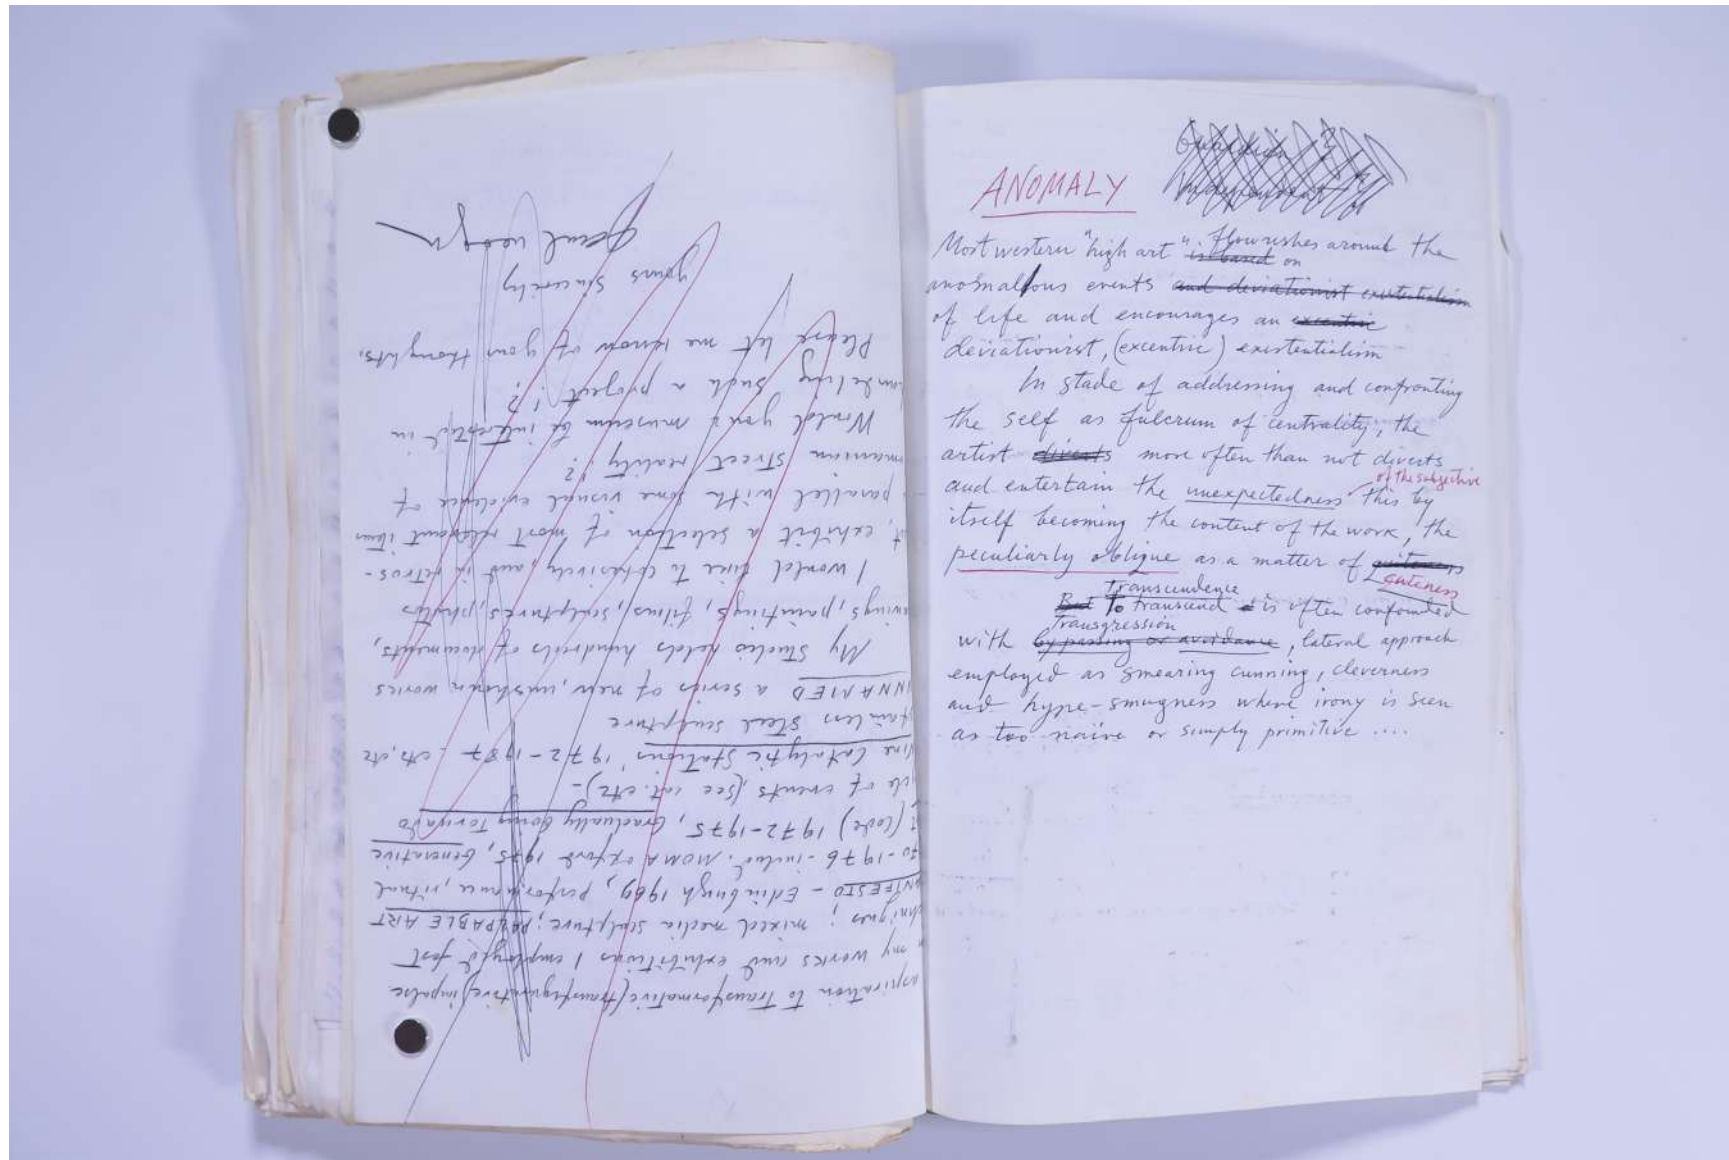 aspiration to transformative/transfigurative/impulse
my works and exhibitions I employed
mixed media sculpture; PALPABLE ART
ANIFESTO - Edinburgh 1969, performance, ritual
70-1976 - includ. MOMA oxford 1975, Generative
(Code) 1972-1975, Gradually Going Tornado
of events (see cat. etc)-
Nine Catalytic Stations' 1972-1987 - etc, etc
stainless steel sculpture
UNNAMED a series of new, unshown works
My studio holds hundreds of documents,
awings, paintings, films, sculptures, photos
I would like to cohesively, and in retros-
ct, exhibit a selection of most relevant items
parallel with some visual evidence of
omanian street reality!?
Would you museum be interested in
andling such a project !?
Please let me know of your thoughts.
yours sincerely
Paul Neagu
ANOMALY
Most western "high art" is based flowrishes around the
on
anomallous events and deviationist existentialism
of life and encourages an excentric
deviationist, (excentric) existentialism
In stade of addressing and confronting
the self as fulcrum of centrality, the
artist diverts more often than not diverts
and entertain the unexpectedness of the subjective this by
itself becoming the content of the work, the
peculiarly oblique as a matter of cuteness
Transcendence
But To transcend is often confounted
Transgression
with by passing or avoidance, lateral approach
employed as smearing cunning, cleverness
and hype-smugness where irony is seen
as too naive or simply primitive ....